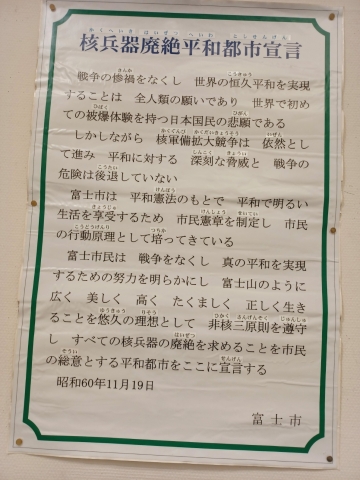 核兵器廃絶平和都市宣言
戦争の惨禍をなくし 世界の恒久平和を実現
することは 全人類の願いであり 世界で初め
ての被爆体験を持つ日本国民の悲願である
しかしながら 核軍備拡大競争は 依然とし
て進み 平和に対する 深刻な脅威と 戦争の
危険は後退していない
富士市は 平和憲法のもとで 平和で明るい
生活を享受するため 市民憲章を制定し 市民
の行動原理として培ってきている
富士市民は 戦争をなくし 真の平和を実現
するための努力を明らかにし 富士山のように
広く 美しく 高く たくましく 正しく生き
ることを悠久の理想として 非核三原則を遵守
し すべての核兵器の廃絶を求めることを市民
の総意とする平和都市をここに宣言する
昭和60年11月19日
富士市